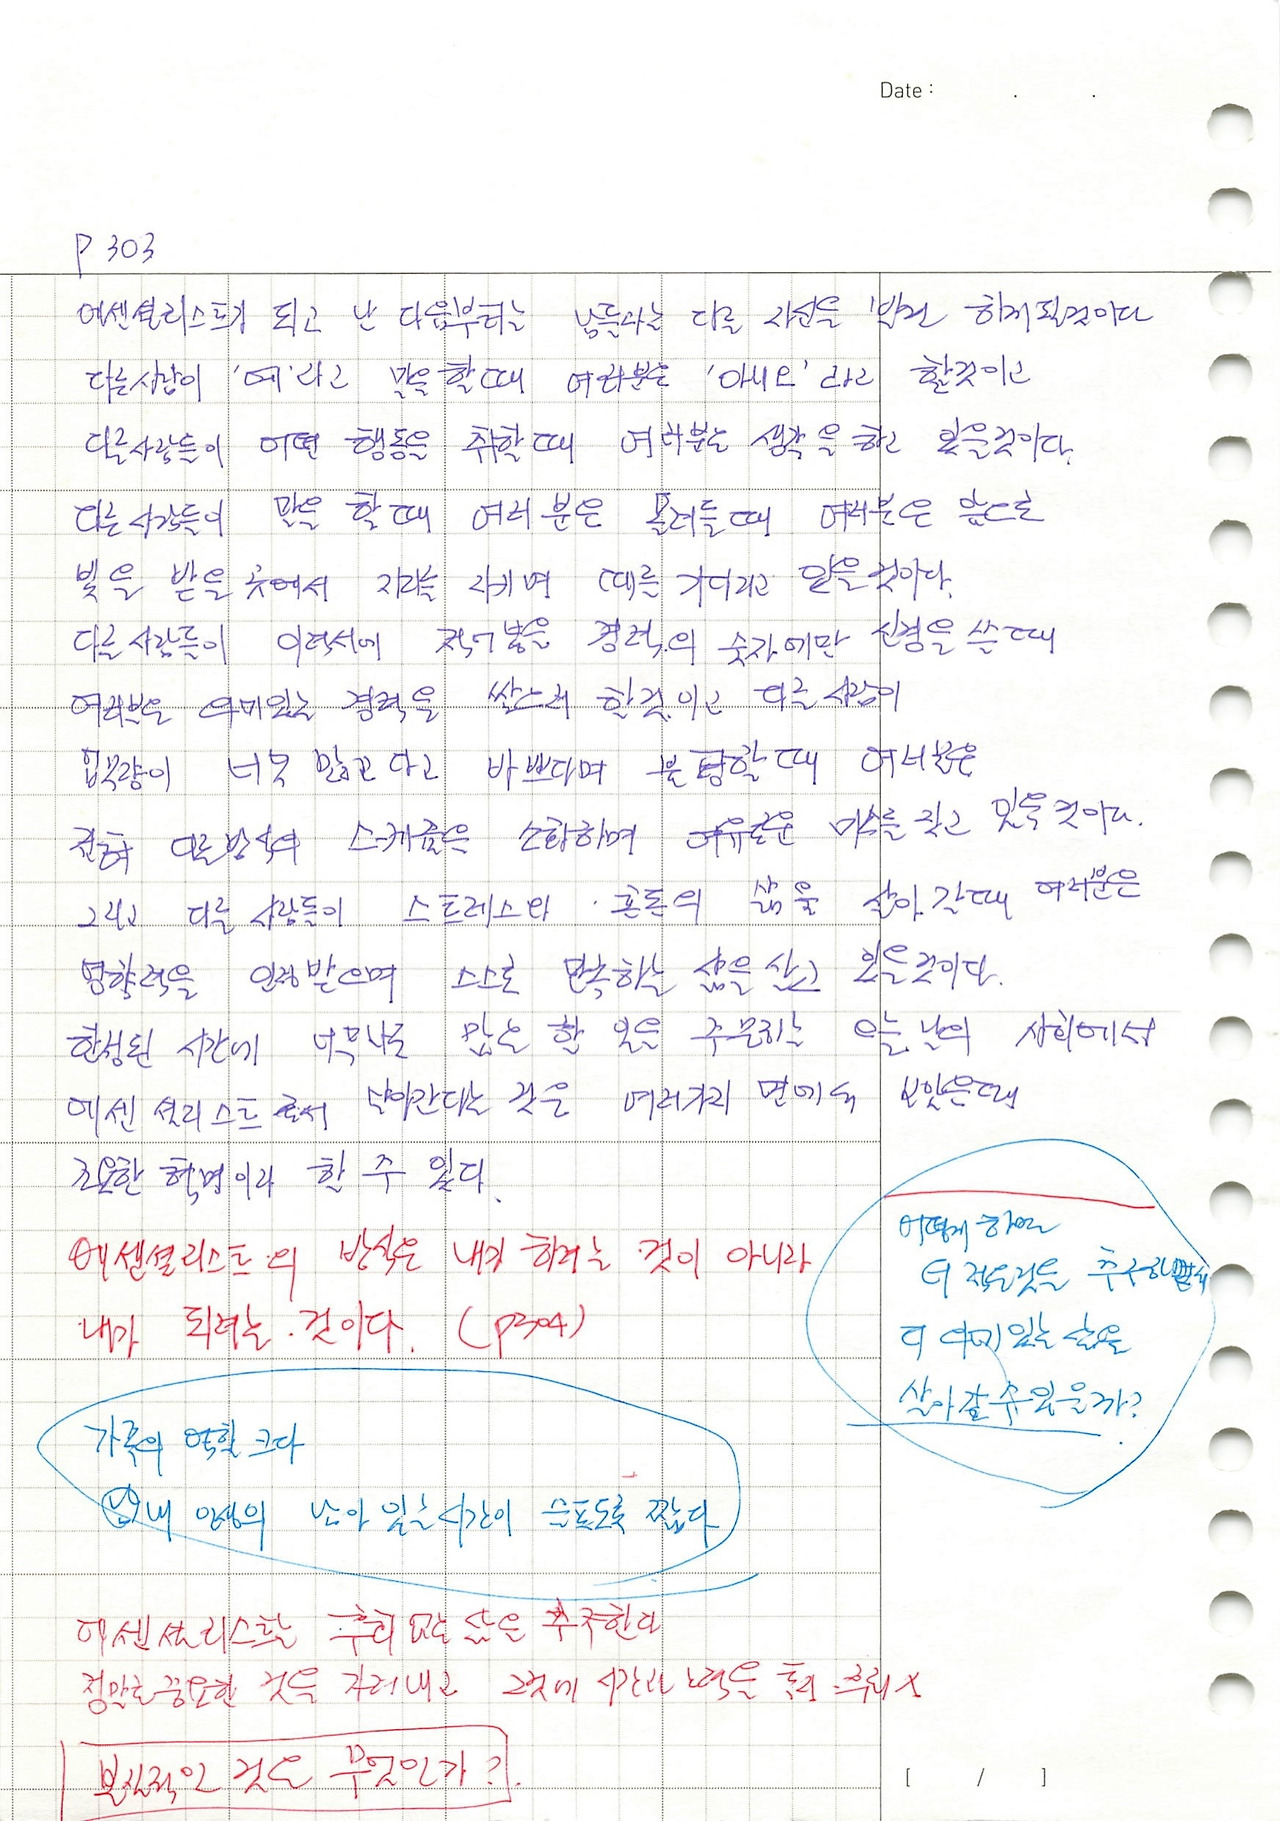 Date : . .
P 303
에센셜리스트가 되고 난 다음부터는 남들과는 다른 자신을 발견 하게 될것이다
다른사람이 '예'라고 말을 할때 여러분은 '아니오' 라고 할것이고
다른사람들이 어떤 행동을 취할때 여러분은 생각을 하고 있을것이다.
다른 사람들이 말을 할때 여러분은 물러들때 여러분은 앞으로
빛을 받을 곳에서 자리를 지키며 때를 기다리고 있을것이다.
다른 사람들이 이력서에 적어놓은 경력의 숫자에만 신경을 쓸때
여러분은 의미있는 경력을 쌓으려 할것이고 다른 사람이
업무량이 너무 많고 다고 바쁘다며 불평할때 여러분은
전혀 다른방식의 스케줄을 소화하며 여유로운 미소를 짓고 있을것이다.
그리고 다른 사람들이 스트레스와 혼돈의 삶을 살아 갈때 여러분은
영향력을 인정받으며 스스로 만족하는 삶을 살고 있을것이다.
한정된 시간에 너무나도 많은 할 일을 주문하는 오늘날의 사회에서
에센셜리스트로서 살아간다는 것은 여러가지 면에서 보았을때
조용한 혁명이라 할 수 있다.
에센셜리스트의 방식은 내가 하려는 것이 아니라
내가 되려는 것이다. (p304)
어떻게 하면
더 적은것을 추구하면서
더 의미있는 삶을
살아갈 수 있을까?
가족의 역할 크다
내 인생의 남아 있는 시간이 슬프도록 짧다
에센셜리스트는 후회 없는 삶을 추구한다
정말로 중요한 것을 가려내고 그것에 시간과 노력을 통해 후회 X
본질적인 것은 무엇인가?
[ / ]